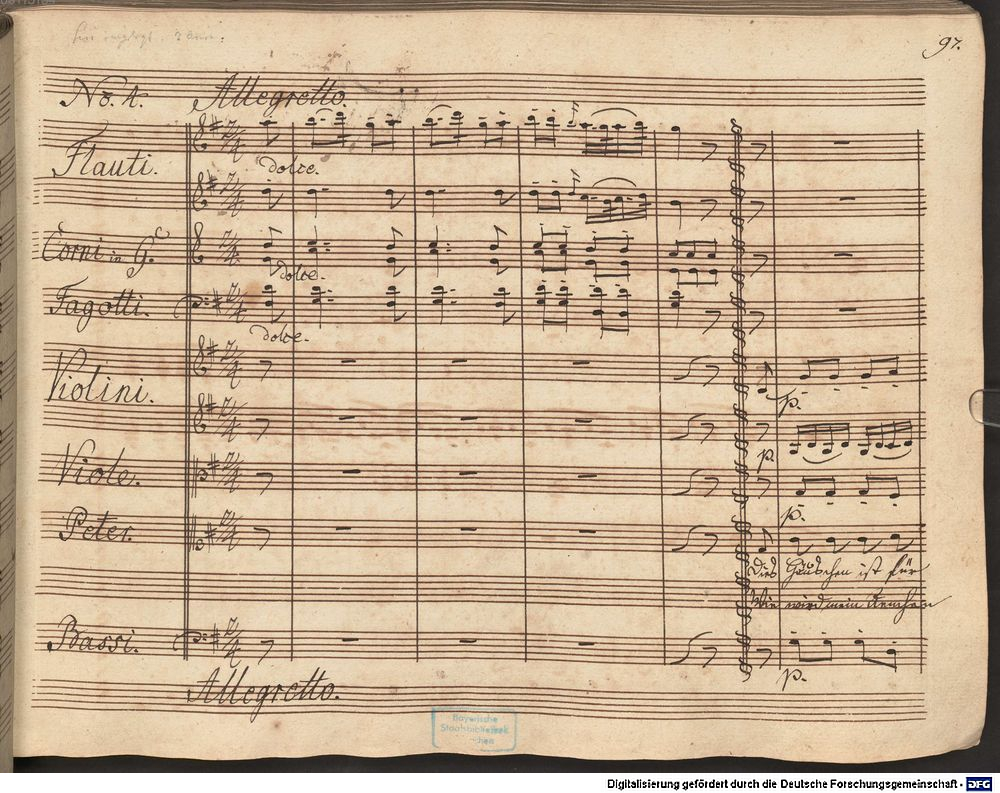 97.
No. 4.
Allegretto.
Flauti.
dolce.
Corni in G.
dolce.
Fagotti.
dolce.
Violini.
p.
p.
Viole.
p.
Peter.
Dies Häuschen ist für
Wie wird mein Aenchen
Bassi.
p.
Allegretto.
Bayerische
Staatsbibliothek
Digitalisierung gefördert durch die Deutsche Forschungsgemeinschaft - DFG